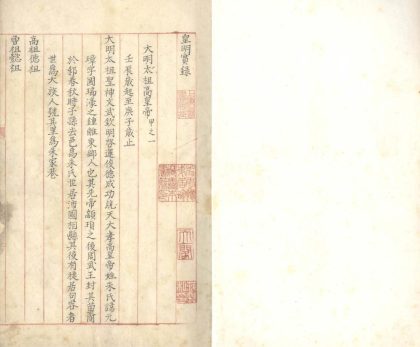 皇明實錄
大明太祖高皇帝 甲之一
壬辰歲起至庚子歲止
大明太祖聖神文武欽明啓運俊德成功統天大孝高皇帝姓朱氏諱元
璋字國瑞濠之鍾離東鄉人也其先帝顓頊之後周武王封其苗裔
於邾春秋時子孫去邑為朱氏世居沛國相縣其後有徙居句容者
世為大族人號其里為朱家巷
高祖德祖
曾祖懿祖